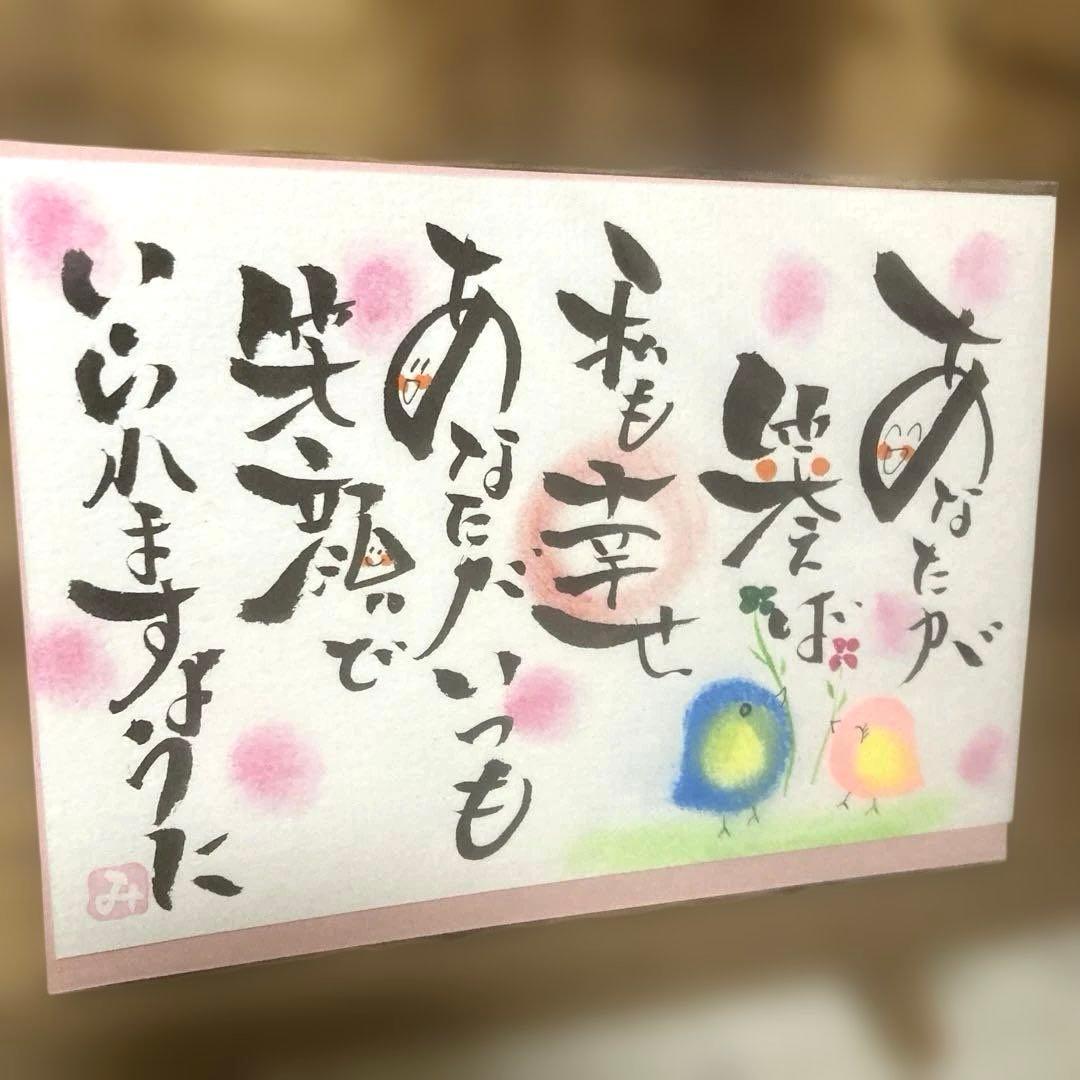 あなたが
笑えば
私も幸せ
あなたがいつも
笑顔で
いられますように
み